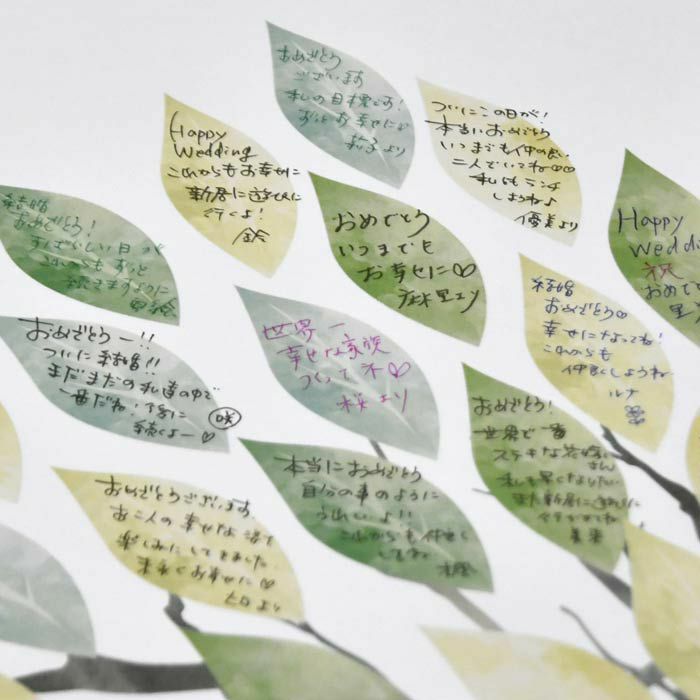 おめでとう
ございます
私の目標です!
ずっとお幸せに
莉子より
Happy
Wedding
これからもお幸せに
新居に遊びに
行くよ!
鈴
ついにこの日が!
本当におめでとう
いつまでも仲の良い
二人でいてね♡♡
ランチ
しようねよ
優美より
おめでとう
いつまでも
お幸せに♡
麻里より
Happy
Wedd
祝
おめで
里
結婚
おめでとう!
すばらしい日が
これからもずっと
続きますように
結婚
おめでとう♡
幸せになってね!
これからも
仲良くしようね
ルナ
世界一
幸せな家族
つくってネ♡
桜より
おめでとうー!!
ついに結婚!!
まだまだの私達の中で
一番だね!
続くよー♡
咲
おめでとう!
世界で一番
ステキな花嫁
さん
また新居に
美来
本当におめでとう
自分の事のように
うれしいよ!!
これからも仲良く
してね
楓
おめでとうございます。
お二人の幸せな姿
楽しみにしてました。
末永くお幸せに♡
より